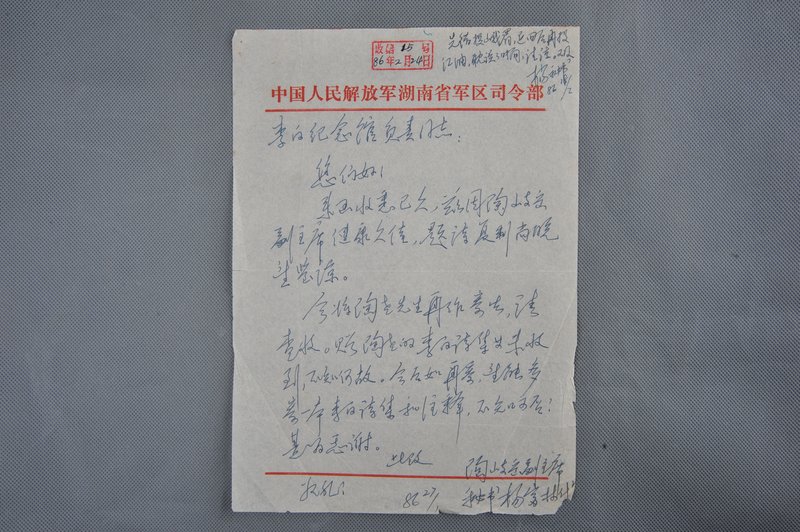 收信 15 号
86年2月24日
先错投峨眉,退回后再投
江油,耽误了时间,请谅。又及
杨
86
中国人民解放军湖南省军区司令部
李白纪念馆负责同志:
您们好!
来函收悉已久,兹因陶峙岳
副主席健康欠佳,题诗复制尚晚
望鉴谅。
今将陶老先生再作寄去,请
查收。赠陶老的李白诗集也未收
到,不知何故。今后如再寄,望能多
寄一本李白诗集和注释,不知可否?
甚为感谢。
此致
敬礼!
陶峙岳副主席
秘书杨
86 27/1